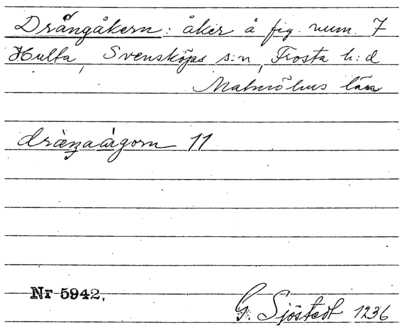 Drångåkern: åker å fig. num. 7
Hulta, Svensköps s:n, Frosta h:d
Malmöhus län
dràŋaågorn 11
Nr 5942.
G. Sjöstedt 1236